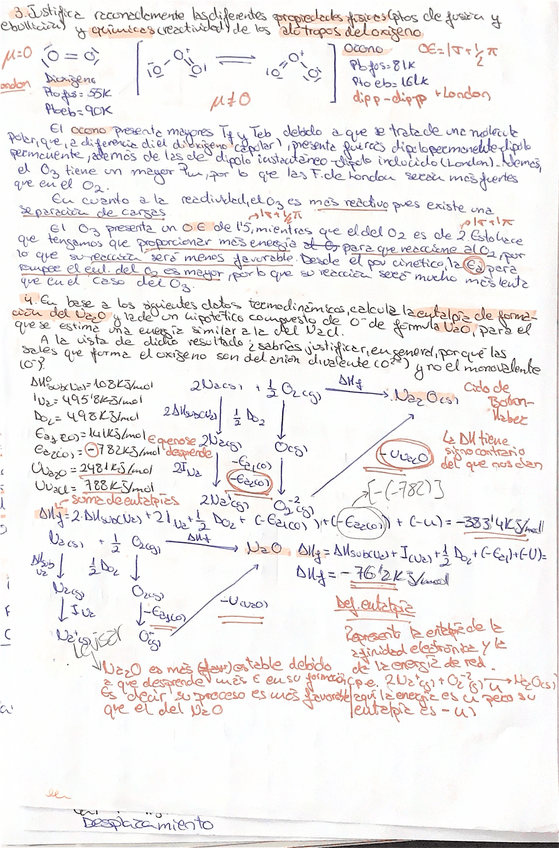 3. Justifica razonadamente las diferentes propiedades físicas (ptos de fusión y
ebullición) y químicas (reactividad) de los alótropos del oxígeno
μ=0
London
O=O
Dioxígeno
Pto fus = 55K
Pto eb = 90K
μ≠0
Ozono
OE = 1σ + ½π
Pto fus = 81K
Pto eb = 161K
dip p - dip p + London
El ozono presenta mayores Tf y Teb debido a que se trata de una molécula
polar, que, a diferencia del dioxígeno (apolar), presenta fuerzas dipolo permanente-dipolo
permanente, además de las de dipolo instantáneo-dipolo inducido (London). Además,
el O3 tiene un mayor Pm, por lo que las F. de London serán más fuertes
que en el O2.
En cuanto a la reactividad, el O3 es más reactivo pues existe una
separación de cargas
→1σ+½π
→1σ+1π
El O3 presenta un OE de 1'5, mientras que el del O2 es de 2. Esto hace
que tengamos que proporcionar más energía para que reaccione al O2, por
lo que su reacción será menos favorable. Desde el pov cinético, la Ea para
romper el enl. del O2 es mayor, por lo que su reacción será mucho más lenta
que en el caso del O3.
4. En base a los siguientes datos termodinámicos, calcula la entalpía de forma-
ción del Na2O y la de un hipotético compuesto de O- de fórmula NaO, para el
que se estima una energía similar a la del NaCl.
A la vista de dicho resultado ¿sabrías justificar, en general, por qué las
sales que forma el oxígeno son del anión divalente (O2-) y no el monovalente
(O-)?
ΔH°sub(Na) = 108 KJ/mol
I Na = 495'8 KJ/mol
DO2 = 498 KJ/mol
Ea1(O) = 141 KJ/mol
Ea2(O) = -782 KJ/mol
UNa2O = 2481 KJ/mol
UNaCl = 788 KJ/mol
E que se
desprende
2Na(s) + ½ O2(g)
ΔHf
Na2O(s)
Ciclo de
Born-
Haber
2ΔHsub(Na)
½ DO2
2Na(g)
O(g)
2INa
-Ea1(O)
-Ea2(O)
2Na+(g)
O-2(g)
-UNa2O
la ΔH tiene
signo contrario
del que nos dan
[-(-782)]
→ suma de entalpías
ΔHf = 2·ΔHsub(Na) + 2INa + ½ DO2 + (-Ea1(O)) + (-Ea2(O)) + (-U) = -383'4 KJ/mol
Na(s) + ½ O2(g)
ΔHf
NaO
ΔHf = ΔHsub(Na) + I(Na) + ½ DO2 + (-Ea1) + (-U) =
ΔHf = -76'2 KJ/mol
ΔHsub
Na
½ DO2
Na(g)
O(g)
INa
-Ea1(O)
-U(NaO)
Na+(g)
O-(g)
revisar
Def. entalpía
Represent la entalpía de la
afinidad electrónica y la
de la energía de red.
p.e. 2Na+(g) + O-2(g) → Na2O(s)
aquí la energía es U pero su
entalpía es -U)
Na2O es más estable debido
a que desprende más E en su formación,
es decir, su proceso es más favorable
que el del NaO
Desplazamiento